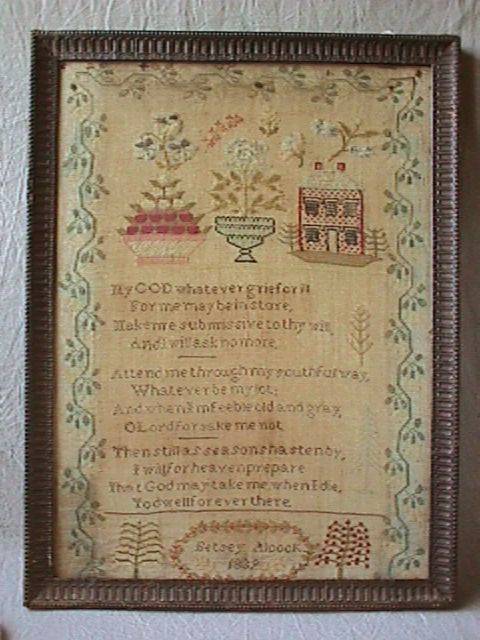 My GOD whatever grief or ill
For me may be in store,
Make me submissive to thy will
And I will ask no more.
Attend me through my youthful way,
Whatever be my lot;
And when I'm feeble old and gray,
O Lord forsake me not.
Then still as seasons hasten by,
I will for heaven prepare
That God may take me, when I die,
To dwell for ever there.
Betsey Alcock